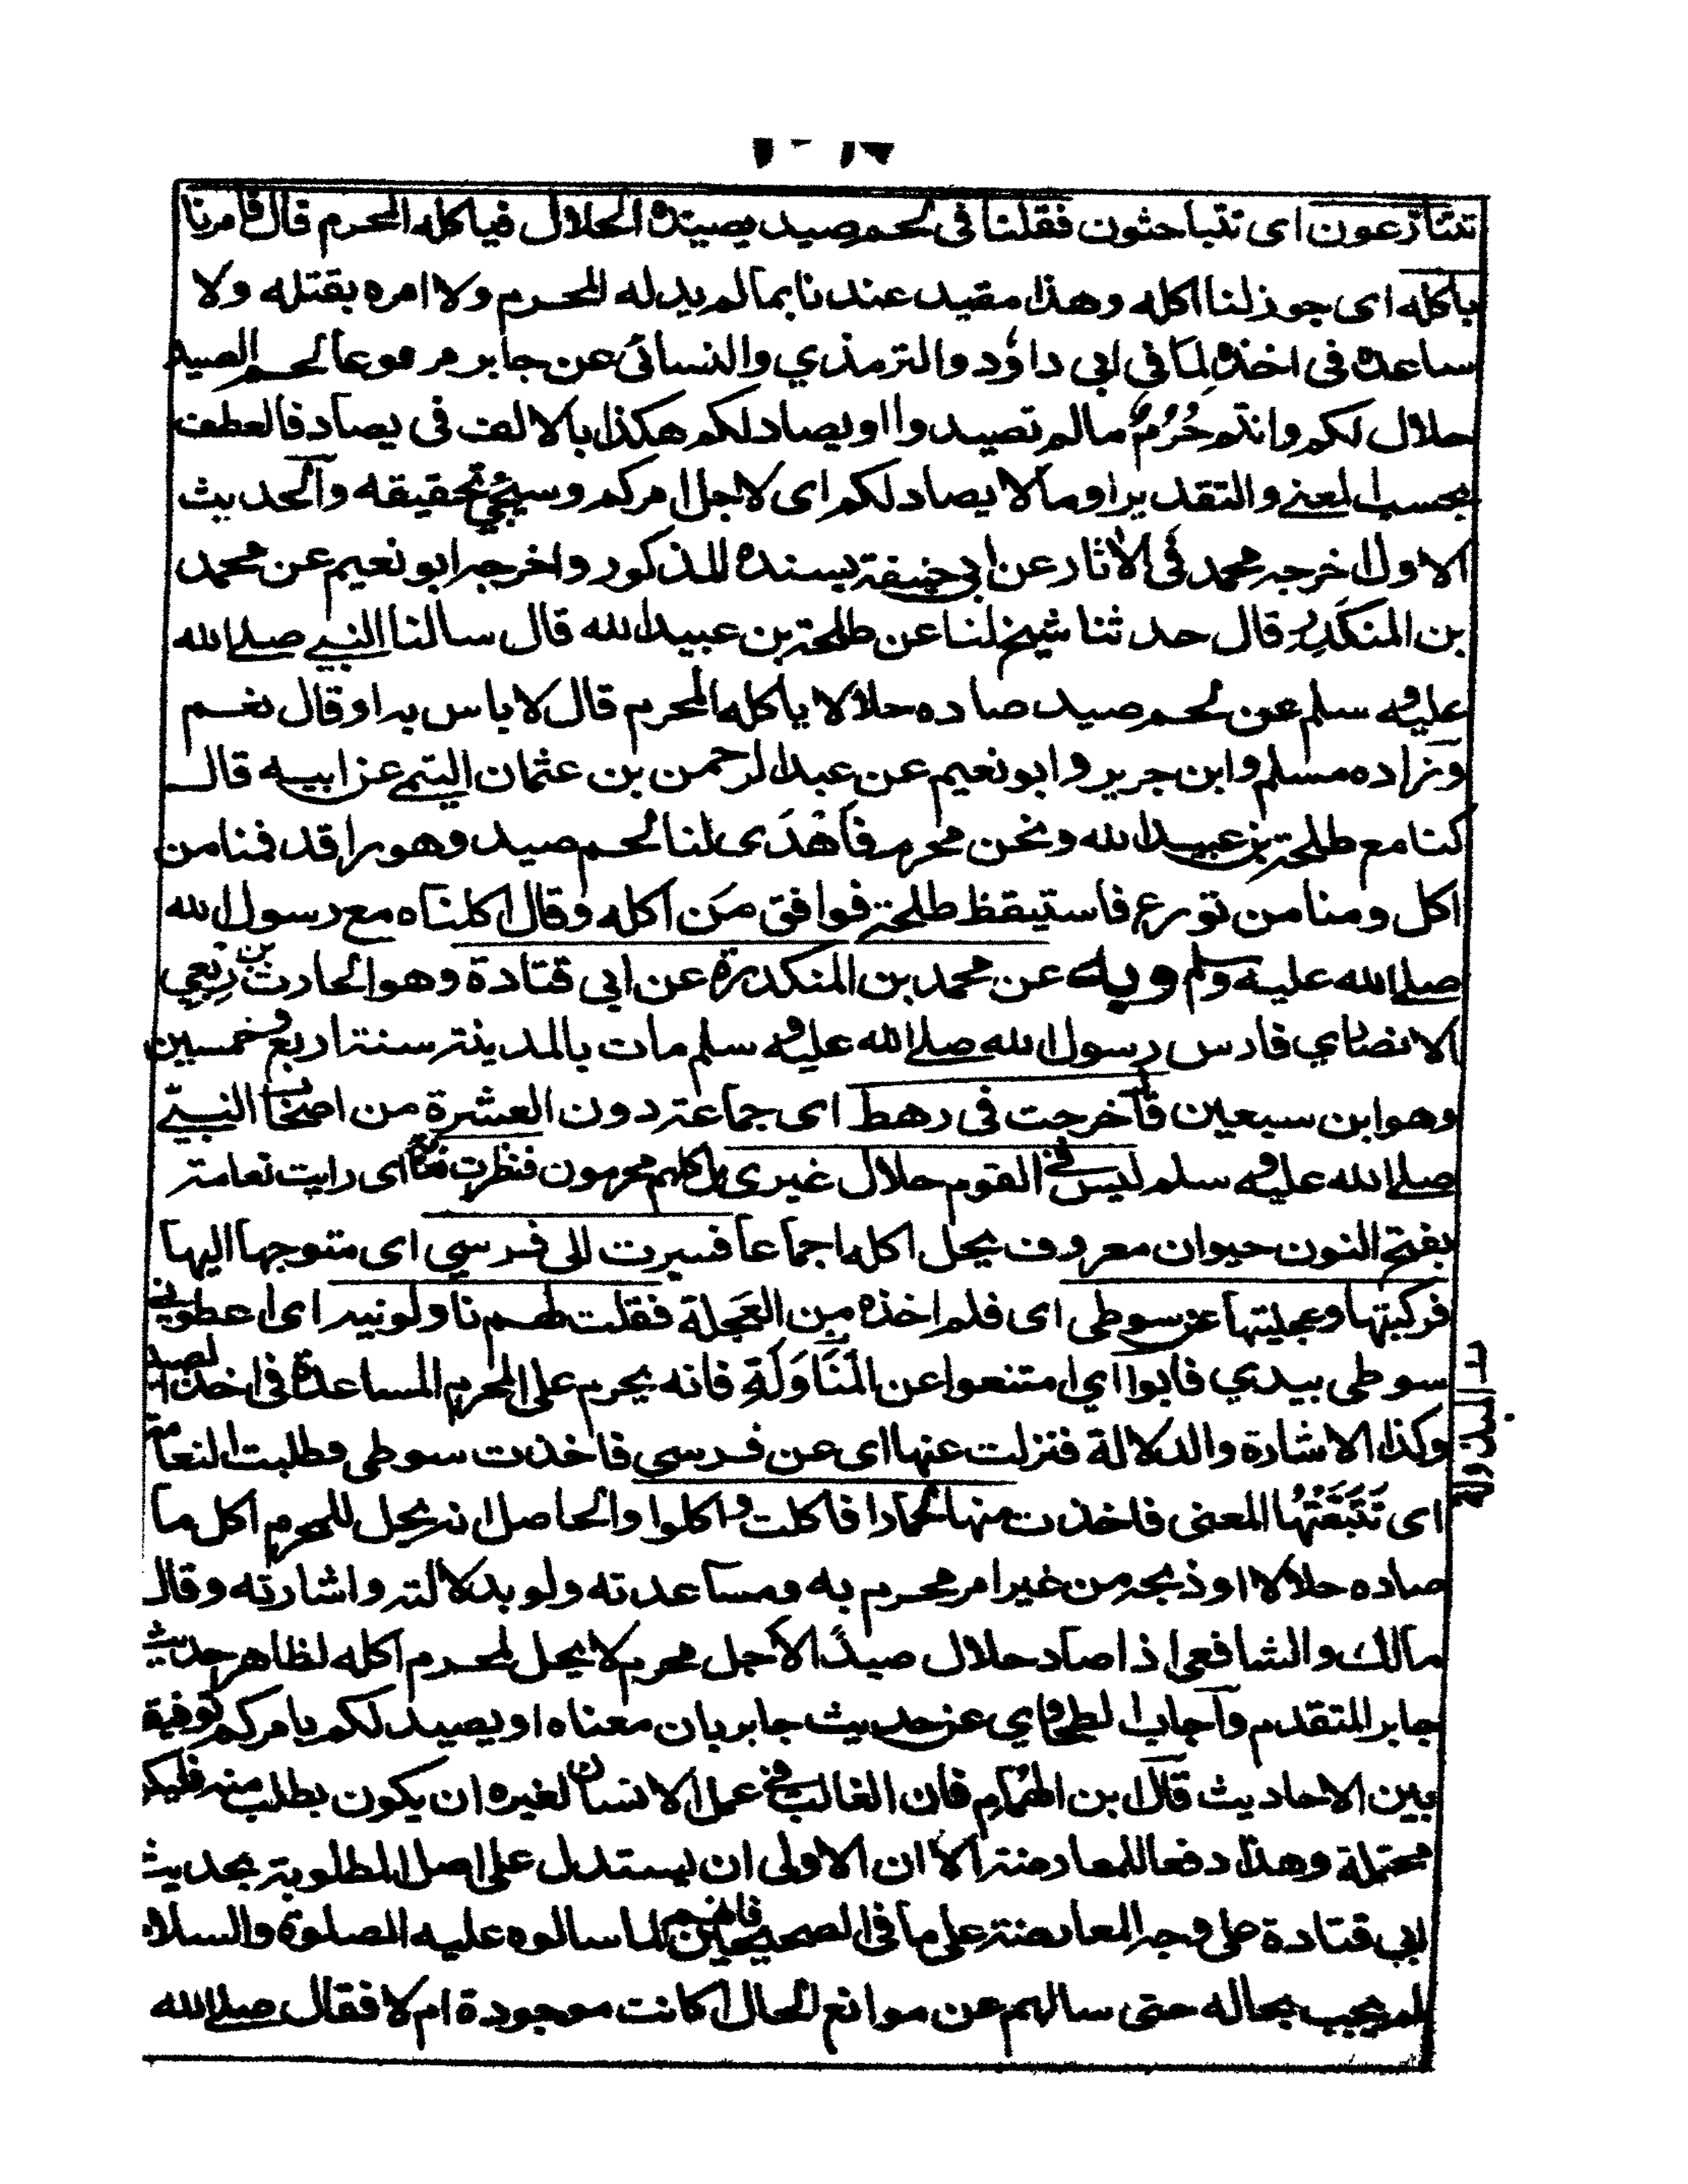 تتنازعون اى تتباحثون فقلنا فى لحم صيد يصيده الحلال فياكله المحرم قال فامرنا
باكله اى جوز لنا اكله وهذا مقيد عندنا بما لم يدله المحرم ولا امره بقتله ولا
ساعده فى اخذه لما في ابي داؤد والترمذي والنسائى عن جابر مرفوعا لحم الصيد
حلال لكم وانتم حُرُمٌ مالم تصيدوا او يصاد لكم هكذا بالالف فى يصاد فالعطف
بحسب المعنے والتقدير او مالا يصاد لكم اى لاجل امركم وسيجئي تحقيقه والحديث
الاول اخرجه محمد فى الاثار عن ابي حنيفة بسنده المذكور واخرجه ابو نعيم عن محمد
بن المنكدر قال حدثنا شيخ لنا عن طلحة بن عبيد الله قال سالنا النبے صلے الله
عليه وسلم عن لحم صيد صاده حلال لا ياكله المحرم قال لا باس به او قال نعم
وزاده مسلم وابن جرير وابو نعيم عن عبد الرحمن بن عثمان التيمے عن ابيه قال
كنا مع طلحة بن عبيد الله ونحن محرم فَاُهْدَى لنا لحم صيد وهو راقد فمنا من
اكل ومنا من تورع فاستيقظ طلحة فوافق مَن اكله وقال اكلناه مع رسول الله
صلے الله عليه وسلم وبه عن محمد بن المنكدر عن ابي قتادة وهو الحارث بن ربعي
الانصاري فارس رسول الله صلے الله عليه وسلم مات بالمدينة سنة اربع وخمسين
وهو ابن سبعين قال خرجت فى رهط اى جماعة دون العشرة من اصحاب النبےّ
صلے الله عليه وسلم ليس فے القوم حلال غيرى بل كلهم محرمون فنظرت نعامة اى رايت نعامة
بفتح النون حيوان معروف يحل اكله اجماعا فسرت الى فرسي اى متوجها اليها
فركبتها وعجلتها عن سوطى اى فلم اخذه مِن العَجلة فقلت لهم ناولونيه اى اعطونے
سوطى بيدي فابوا اي امتنعوا عن المُنَاوَلَةِ فانه يحرم على المحرم المساعدة فى اخذ الصيد
وكذا الاشارة والدلالة فنزلت عنها اى عن فرسي فاخذت سوطى فطلبت النعامة
اى تَتَبَّعْتُهَا المعنى فاخذت منها لحما را فاكلت واكلوا والحاصل انه يحل للمحرم اكل ما
صاده حلال او ذبحه من غير امر محرم به ومساعدته ولو بدلالته واشارته وقال
مالك والشافعى اذا صاد حلال صيدًا لاجل محرم لا يحل لمحرم اكله لظاهر حديث
جابر المتقدم واجاب الطحاوي عن حديث جابر بان معناه او يصيد لكم بامركم توفيقا
بين الاحاديث قال بن الهُمَام فان الغالب فے عمل الانسان لغيره ان يكون بطلب منه فليكن
محمله وهذا دفعا للمعارضة الا ان الاولى ان يستدل على اصل المطلوبة بحديث
ابي قتادة على وجه المعارضة على ما فى الصحيحين فانهم لما سالوه عليه الصلوة والسلام
لم يجب بحاله حتى سالهم عن موانع الحال اكانت موجودة ام لا فقال صلے الله